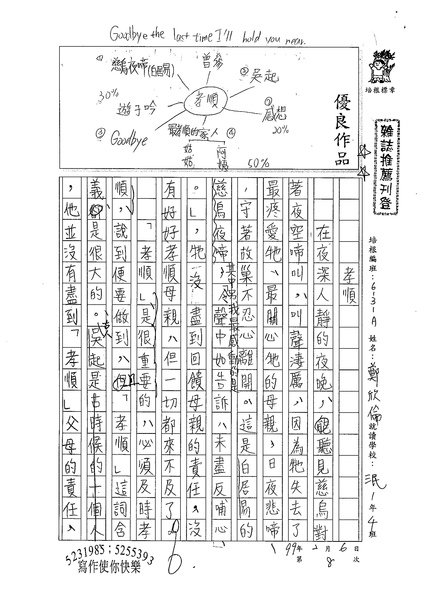 Goodbye the last time I'll hold you near.
慈烏夜啼(白居易)
曾參
吳起
30%
孝順
遊子吟
感想
20%
Goodbye
50%
優良作品
培根標章
雜誌推薦刊登
培根編班：6131A 姓名：鄭欣倫 就讀學校：民1年4班
99年2月6日
第8次
孝順
在夜深人靜的夜晚，聽見慈烏對
著夜空啼叫，叫聲淒厲，因為牠失去了
最疼愛牠、最關心牠的母親，日夜悲啼
，守著故巢不忍心離開。這是白居易的
慈烏夜啼，
其中令我最感動的是
聲中如告訴，未盡反哺心
。」牠沒盡到回饋母親的責任，沒
有好好孝順母親，但一切都來不及了。
「孝順」是很重要的，必須及時孝
順，說到便要做到，但「孝順」這詞含
義是很大的。吳起是古時候的一個人
，他並沒有盡到「孝順」父母的責任，
5231985；5255393
寫作使你快樂